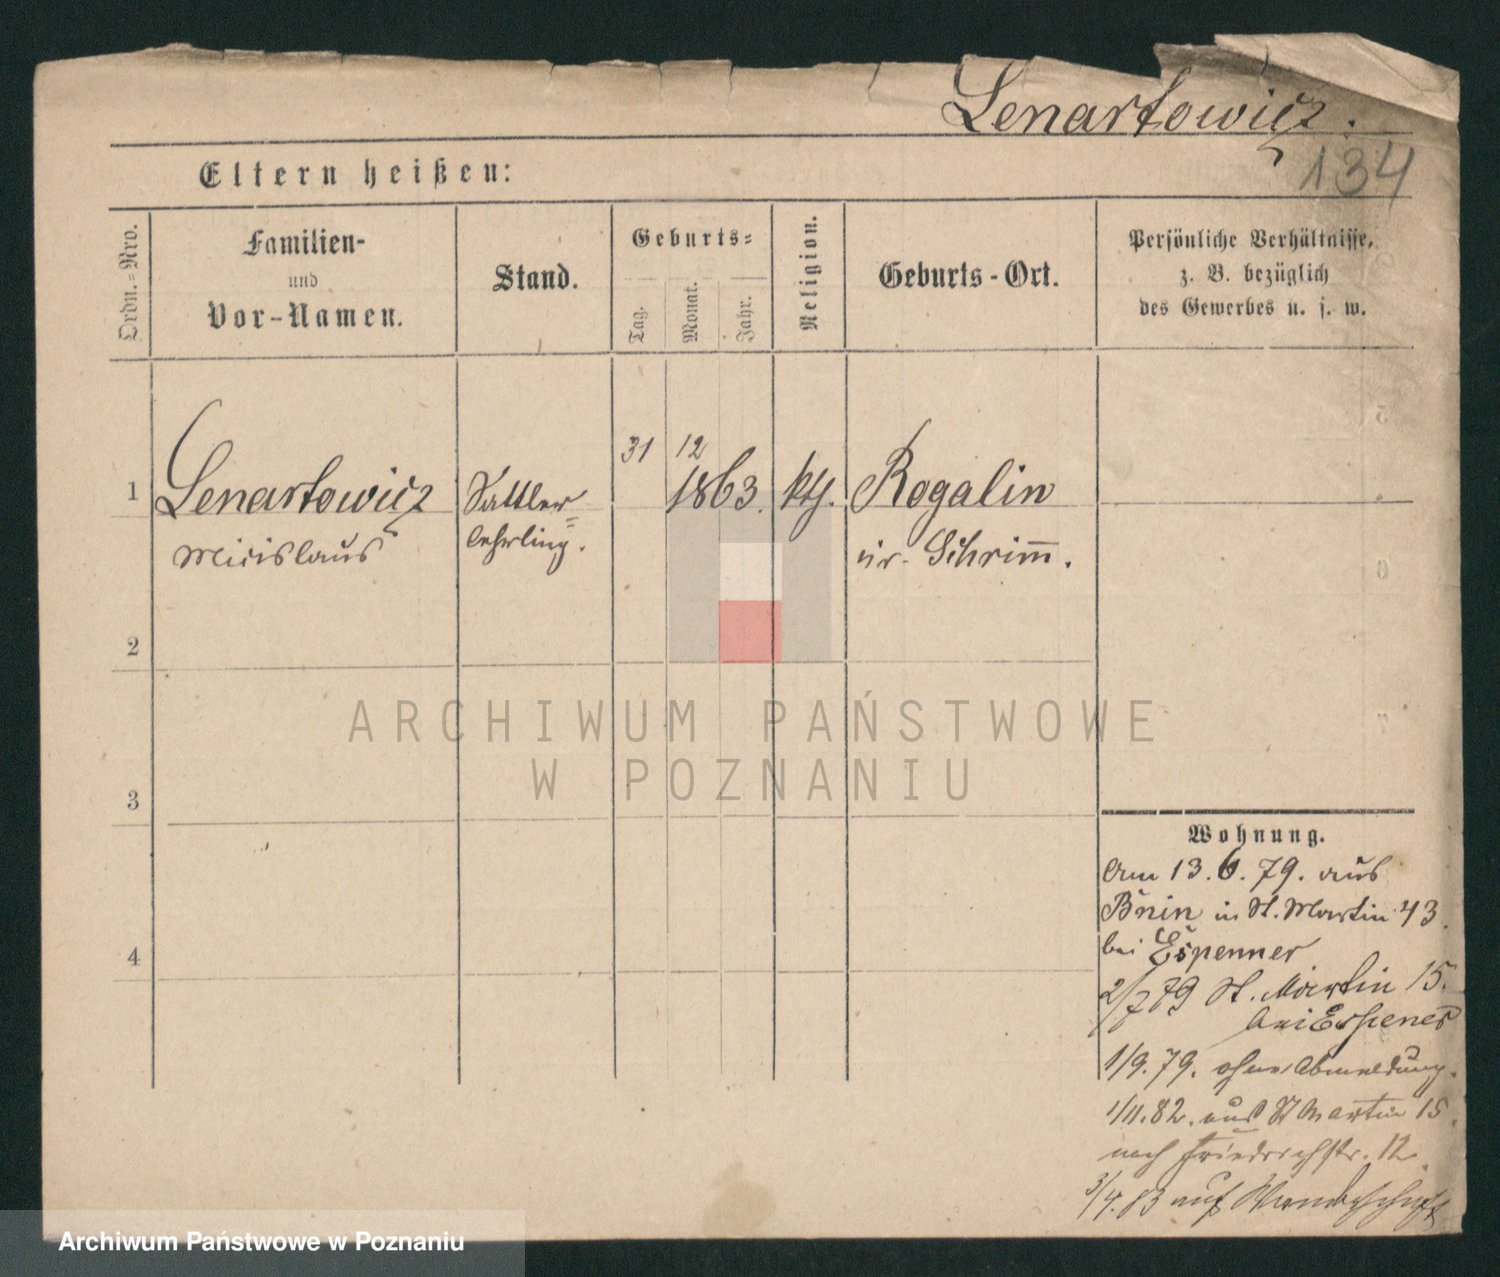 Lenartowicz.
134
Eltern heißen:
Ordn.-Nro.
Familien-
und
Vor-Namen.
Stand.
Geburts-
Tag.
Monat.
Jahr.
Religion.
Geburts-Ort.
Persönliche Verhältnisse,
z. B. bezüglich
des Gewerbes u. s. w.
1
Lenartowicz
Miecislaus
Sattler=
lehrling.
31 12
1863.
kth.
Rogalin
Kr. Schrimm.
2
3
4
ARCHIWUM PAŃSTWOWE
W POZNANIU
Wohnung.
Am 13.6.79. aus
Bnin in St. Martin 43.
bei Espenner
2/7 79 St. Martin 15.
bei Espener
1/9.79. ohne Abmeldung.
1/11.82. aus St Martin 15.
nach Friedrichstr. 12.
3/4.83 auf Wanderschaft
Archiwum Państwowe w Poznaniu